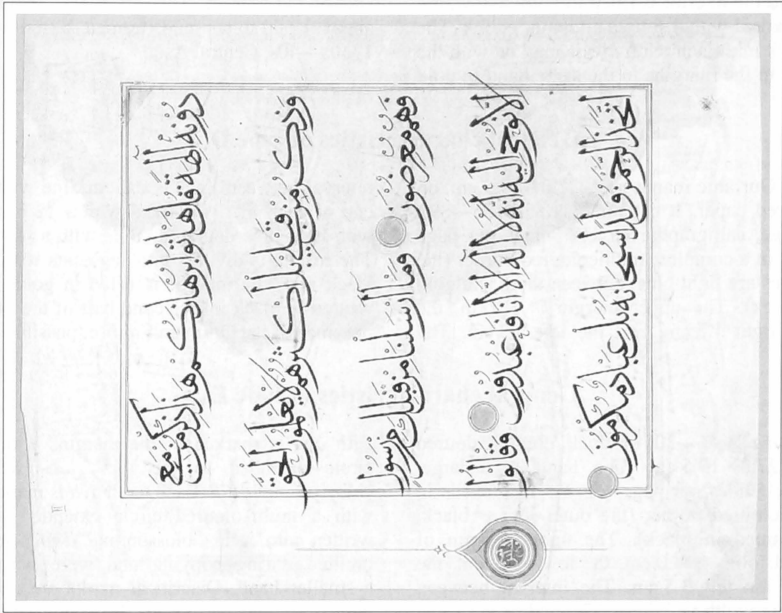 دونه آلهة قل هاتوا برهانكم هذا ذكر من معي
وذكر من قبلي بل أكثرهم لا يعلمون الحق
فهم معرضون وما أرسلنا من قبلك من رسول
إلا نوحي إليه أنه لا إله إلا أنا فاعبدون وقالوا
اتخذ الرحمن ولدا سبحانه بل عباد مكرمون